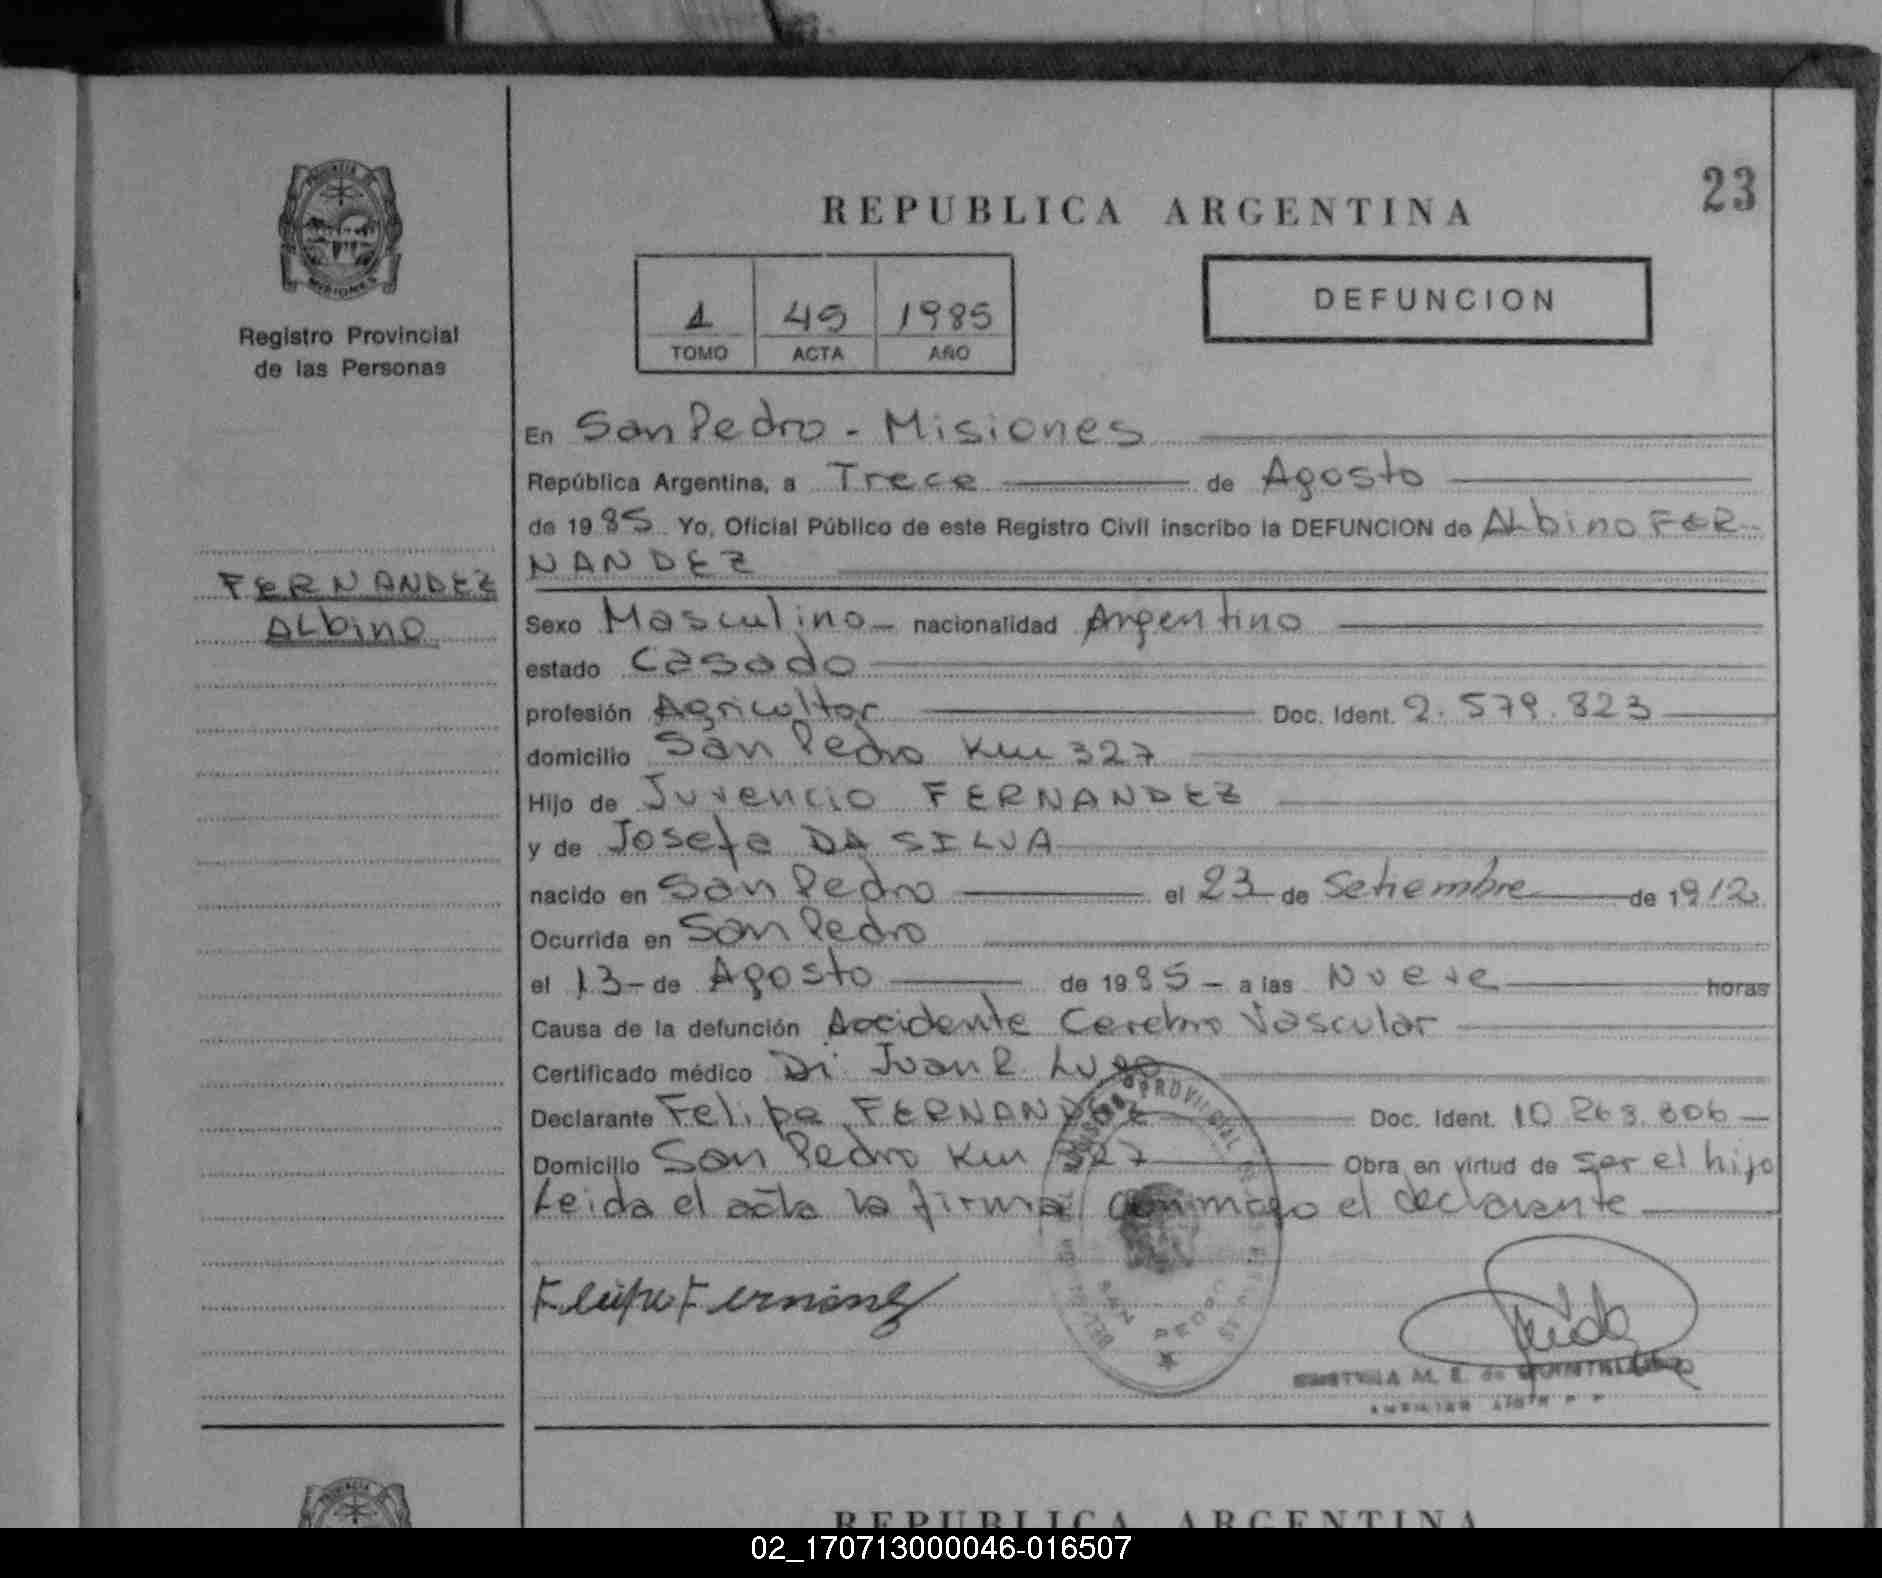 23
REPUBLICA ARGENTINA
PROVINCIA DE
MISIONES
Registro Provincial
de las Personas
1 45 1985
TOMO ACTA AÑO
DEFUNCION
En San Pedro - Misiones
República Argentina, a Trece de Agosto
de 1985 Yo, Oficial Público de este Registro Civil inscribo la DEFUNCION de ALbino FER
NANDEZ
FERNANDEZ
ALbino
Sexo Masculino nacionalidad Argentino
estado Casado
profesión Agricultor Doc. Ident. 2.579.823
domicilio San Pedro Km 327
Hijo de Juvencio FERNANDEZ
y de Josefa DA SILVA
nacido en San Pedro el 23 de Setiembre de 1912
Ocurrida en San Pedro
el 13 de Agosto de 1985 a las Nueve horas
Causa de la defunción Accidente Cerebro Vascular
Certificado médico Juan R. Lugo
Declarante Felipe FERNANDEZ Doc. Ident. 10.263.806
Domicilio San Pedro Km 327 Obra en virtud de ser el hijo
Leida el acta la firma conmigo el declarante
Felipe Fernandez
SAN PEDRO
M. E. de
REPUBLICA ARGENTINA
02_170713000046-016507